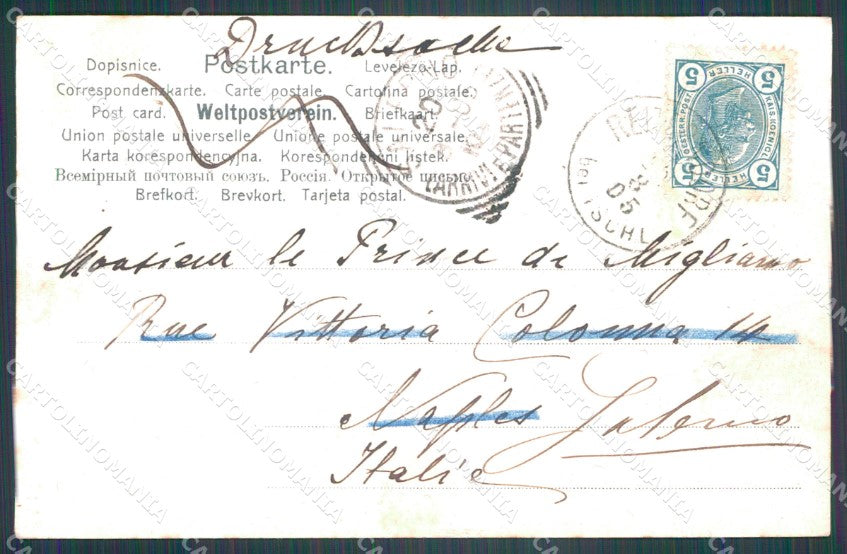 Drucksache
Dopisnice. Postkarte. Levelezo-Lap.
Correspondenzkarte. Carte postale. Cartolina postale.
Post card. Weltpostverein. Briefkaart.
Union postale universelle. Unione postale universale.
Karta korespondencyjna. Korespondenční listek.
Всемірный почтовый союзъ. Россія. Открытое письмо.
Brefkort. Brevkort. Tarjeta postal.
5 5
HELLER
KAIS. KOENIGL.
OESTERR. POST
HELLER
5 5
bei ISCHL
ARRIVI E PARTENZE
Monsieur le Prince de Migliano
Rue Vittoria Colonna 14
Naples Salerno
Italie
CARTOLINOMANIA